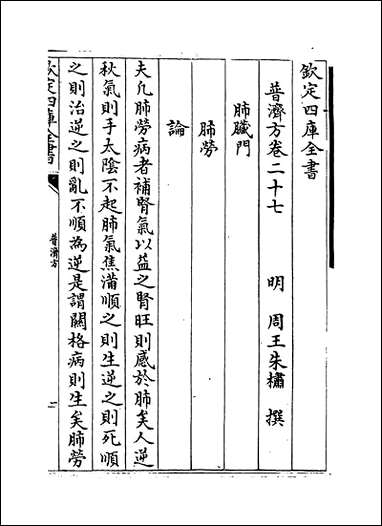 欽定四庫全書
普濟方卷二十七
明 周王朱橚 撰
肺臟門
肺勞
論
夫凡肺勞病者補腎氣以益之腎旺則感於肺矣人逆
秋氣則手太陰不起肺氣焦滿順之則生逆之則死順
之則治逆之則亂不順為逆是謂關格病則生矣肺勞
欽定四庫全書
普濟方